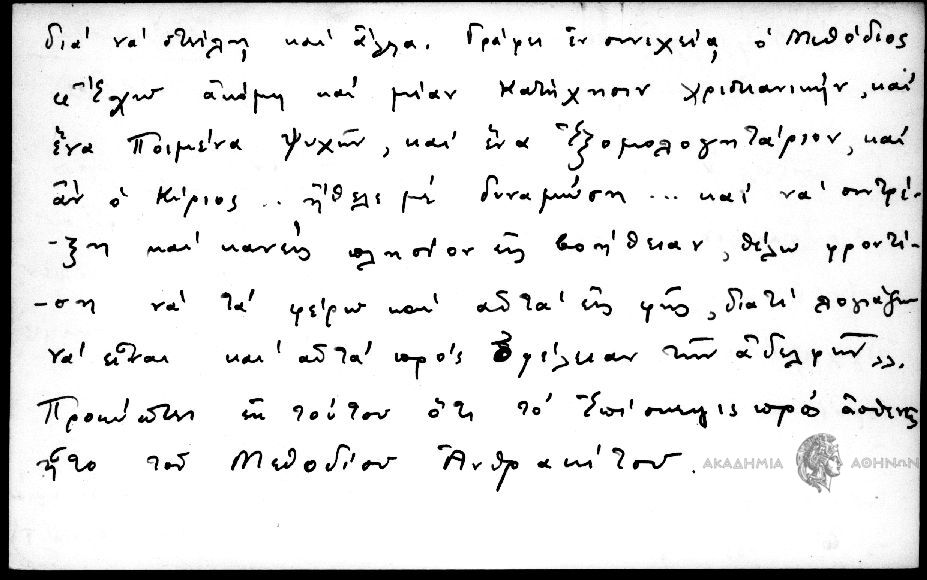 διὰ νὰ στείλῃ καὶ ἄλλα. Γράφει ἐν συνεχείᾳ ὁ Μεθόδιος
«Ἔχω ἀκόμη καὶ μίαν Κατήχησιν χριστιανικήν, καὶ
ἕνα Ποιμένα ψυχῶν, καὶ ἕνα Ἐξομολογητάριον, καὶ
ἂν ὁ Κύριος .. ἤθελε μὲ δυναμώσῃ ... καὶ νὰ συντρέ-
-ξῃ καὶ κανεὶς πλησίον εἰς βοήθειαν, θέλω φροντί-
-σῃ νὰ τὰ φέρω καὶ αὐτὰ εἰς φῶς, διατὶ λογιάζω
νὰ εἶναι καὶ αὐτὰ πρὸς ὠφέλειαν τῶν ἀδελφῶν».
Προκύπτει ἐκ τούτου ὅτι τὸ Ἐπίσκεψις πρὸς ἀσθενεῖς
ἦτο τοῦ Μεθοδίου Ἀνθρακίτου.
ΑΚΑΔΗΜΙΑ ΑΘΗΝΩΝ